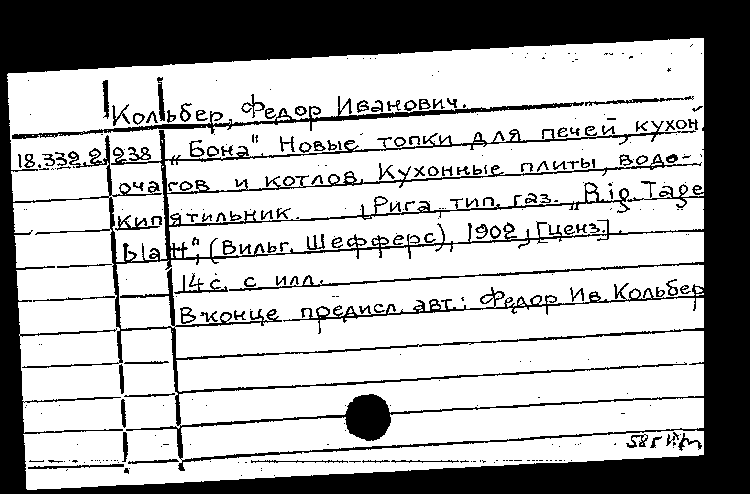 Кольбер, Федор Иванович.
18.339.2.238 „Бона". Новые топки для печей, кухон.
очагов и котлов. Кухонные плиты, водо-
кипятильник. [Рига, тип. газ. „Rig. Tage
blatt", (Вильг. Шефферс), 1902, [ценз.].
14 с. с илл.
В конце предисл. авт.: Федор Ив. Кольбер